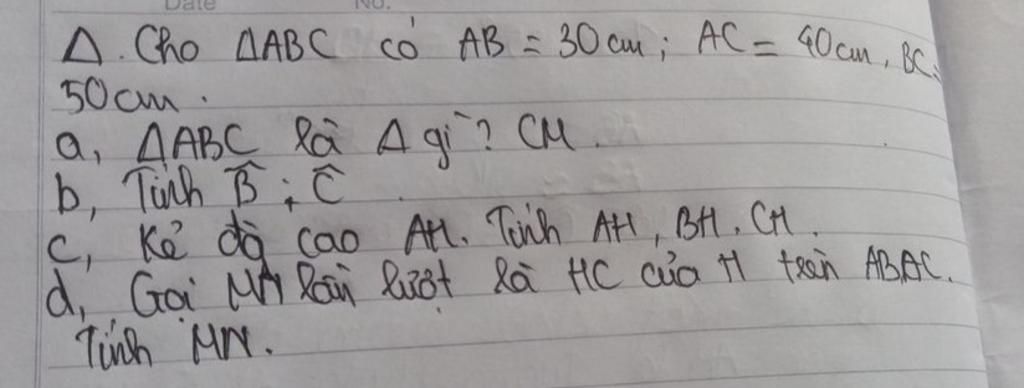 Date No.
Δ. Cho ΔABC có AB = 30cm; AC = 40cm, BC=
50cm.
a, ΔABC là Δ gì? CM.
b, Tính B̂; Ĉ
c, Kẻ đg cao AH. Tính AH, BH, CH.
d, Gọi MN lần lượt là HC của H trên ABAC.
Tính MN.